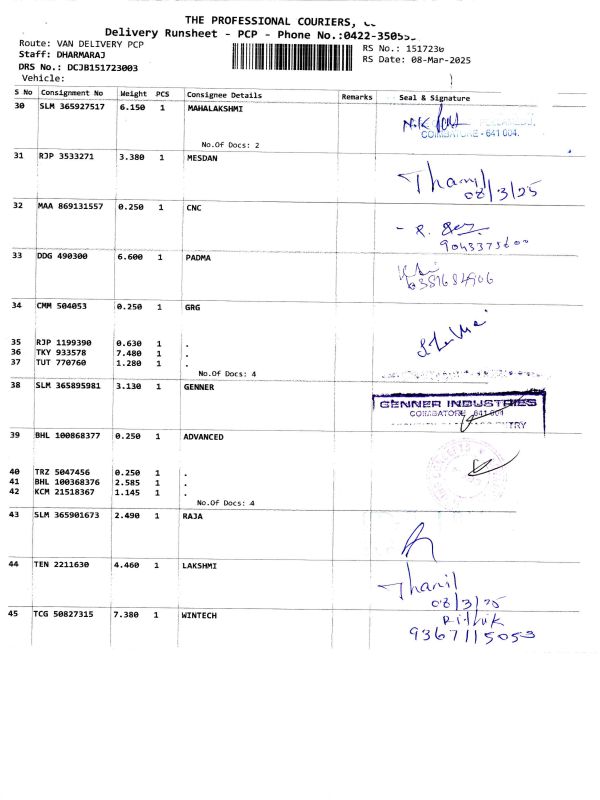 THE PROFESSIONAL COURIERS,
Delivery Runsheet - PCP - Phone No.:0422-35055
Route: VAN DELIVERY PCP
RS No.: 1517230
Staff: DHARMARAJ
RS Date: 08-Mar-2025
DRS No.: DCJB151723003
Vehicle:
S No Consignment No Weight PCS Consignee Details Remarks Seal & Signature
30 SLM 365927517 6.150 1 MAHALAKSHMI
COIMBATORE - 641 004.
No.Of Docs: 2
31 RJP 3533271 3.380 1 MESDAN
08/3/25
32 MAA 869131557 0.250 1 CNC
33 DDG 490300 6.600 1 PADMA
6381684906
34 CMM 504053 0.250 1 GRG
35 RJP 1199390 0.630 1 .
36 TKY 933578 7.480 1 .
37 TUT 770760 1.280 1 .
No.Of Docs: 4
38 SLM 365895981 3.130 1 GENNER
GENNER INDUSTRIES
COIMBATORE 641 004
39 BHL 100868377 0.250 1 ADVANCED
40 TRZ 5047456 0.250 1 .
41 BHL 100368376 2.585 1 .
42 KCM 21518367 1.145 1 .
No.Of Docs: 4
43 SLM 365901673 2.490 1 RAJA
44 TEN 2211630 4.460 1 LAKSHMI
Thanil
08/3/25
45 TCG 50827315 7.380 1 WINTECH
Rithik
9367115053